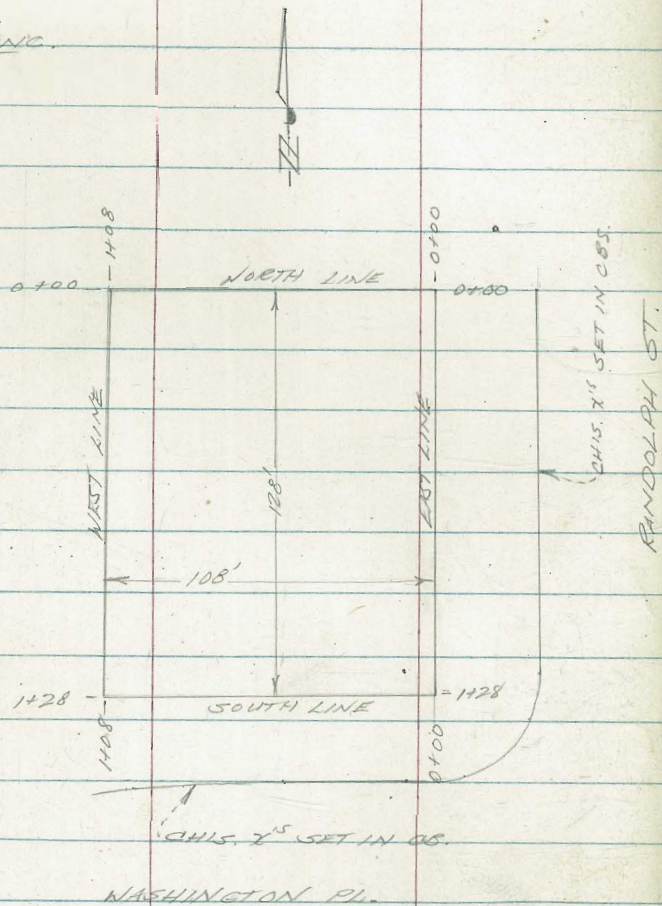 INC.
N
1+08
0+00
0+00
NORTH LINE
0+00
CHIS. X'S SET IN CBS.
RANDOLPH ST.
WEST LINE
128'
EAST LINE
108'
1+28
SOUTH LINE
1+28
1+08
0+00
CHIS. X'S SET IN CB.
WASHINGTON PL.